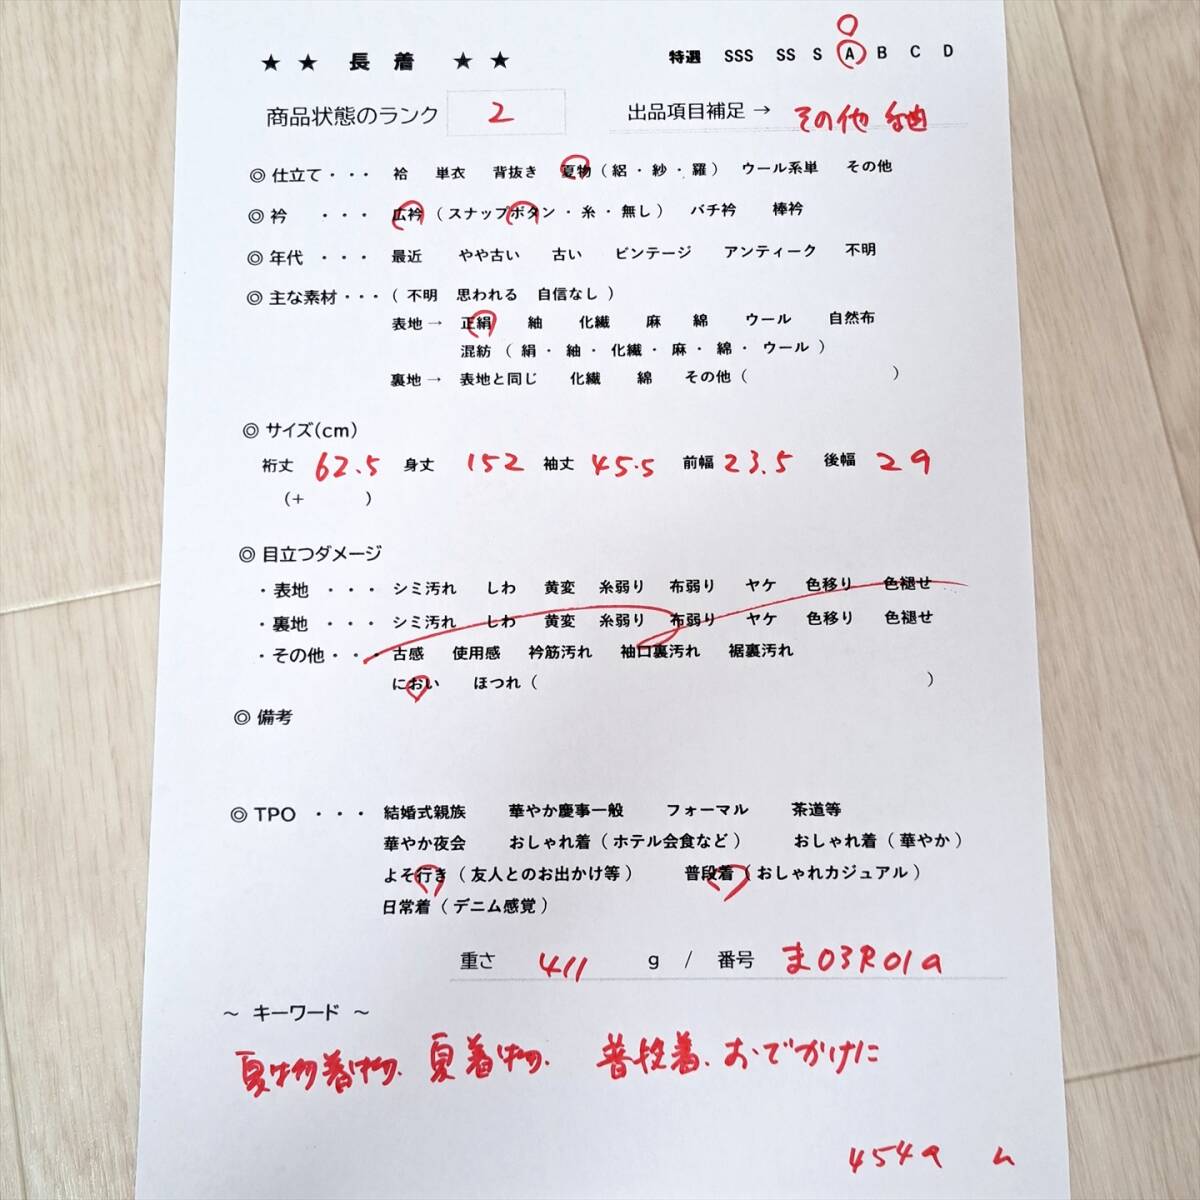 ★ ★ 長 着 ★ ★ 特選 SSS SS S A B C D
商品状態のランク 2 出品項目補足 → その他 紬
◎ 仕立て・・・ 袷 単衣 背抜き 夏物 ( 絽 ・ 紗 ・ 羅 ) ウール系単 その他
◎ 衿 ・・・ 広衿 ( スナップボタン ・ 糸 ・ 無し ) バチ衿 棒衿
◎ 年代 ・・・ 最近 やや古い 古い ビンテージ アンティーク 不明
◎ 主な素材・・・ ( 不明 思われる 自信なし )
表地 → 正絹 紬 化繊 麻 綿 ウール 自然布
混紡 ( 絹 ・ 紬 ・ 化繊 ・ 麻 ・ 綿 ・ ウール )
裏地 → 表地と同じ 化繊 綿 その他 ( )
◎ サイズ(cm)
裄丈 62.5 身丈 152 袖丈 45.5 前幅 23.5 後幅 29
(+ )
◎ 目立つダメージ
・表地 ・・・ シミ汚れ しわ 黄変 糸弱り 布弱り ヤケ 色移り 色褪せ
・裏地 ・・・ シミ汚れ しわ 黄変 糸弱り 布弱り ヤケ 色移り 色褪せ
・その他・・・ 古感 使用感 衿筋汚れ 袖口裏汚れ 裾裏汚れ
におい ほつれ ( )
◎ 備考
◎ TPO ・・・ 結婚式親族 華やか慶事一般 フォーマル 茶道等
華やか夜会 おしゃれ着 ( ホテル会食など ) おしゃれ着 ( 華やか )
よそ行き ( 友人とのお出かけ等 ) 普段着 ( おしゃれカジュアル )
日常着 ( デニム感覚 )
重さ 411 g / 番号 ま03R01a
～ キーワード ～
夏物着物、夏着物、 普段着、おでかけに
454a ム